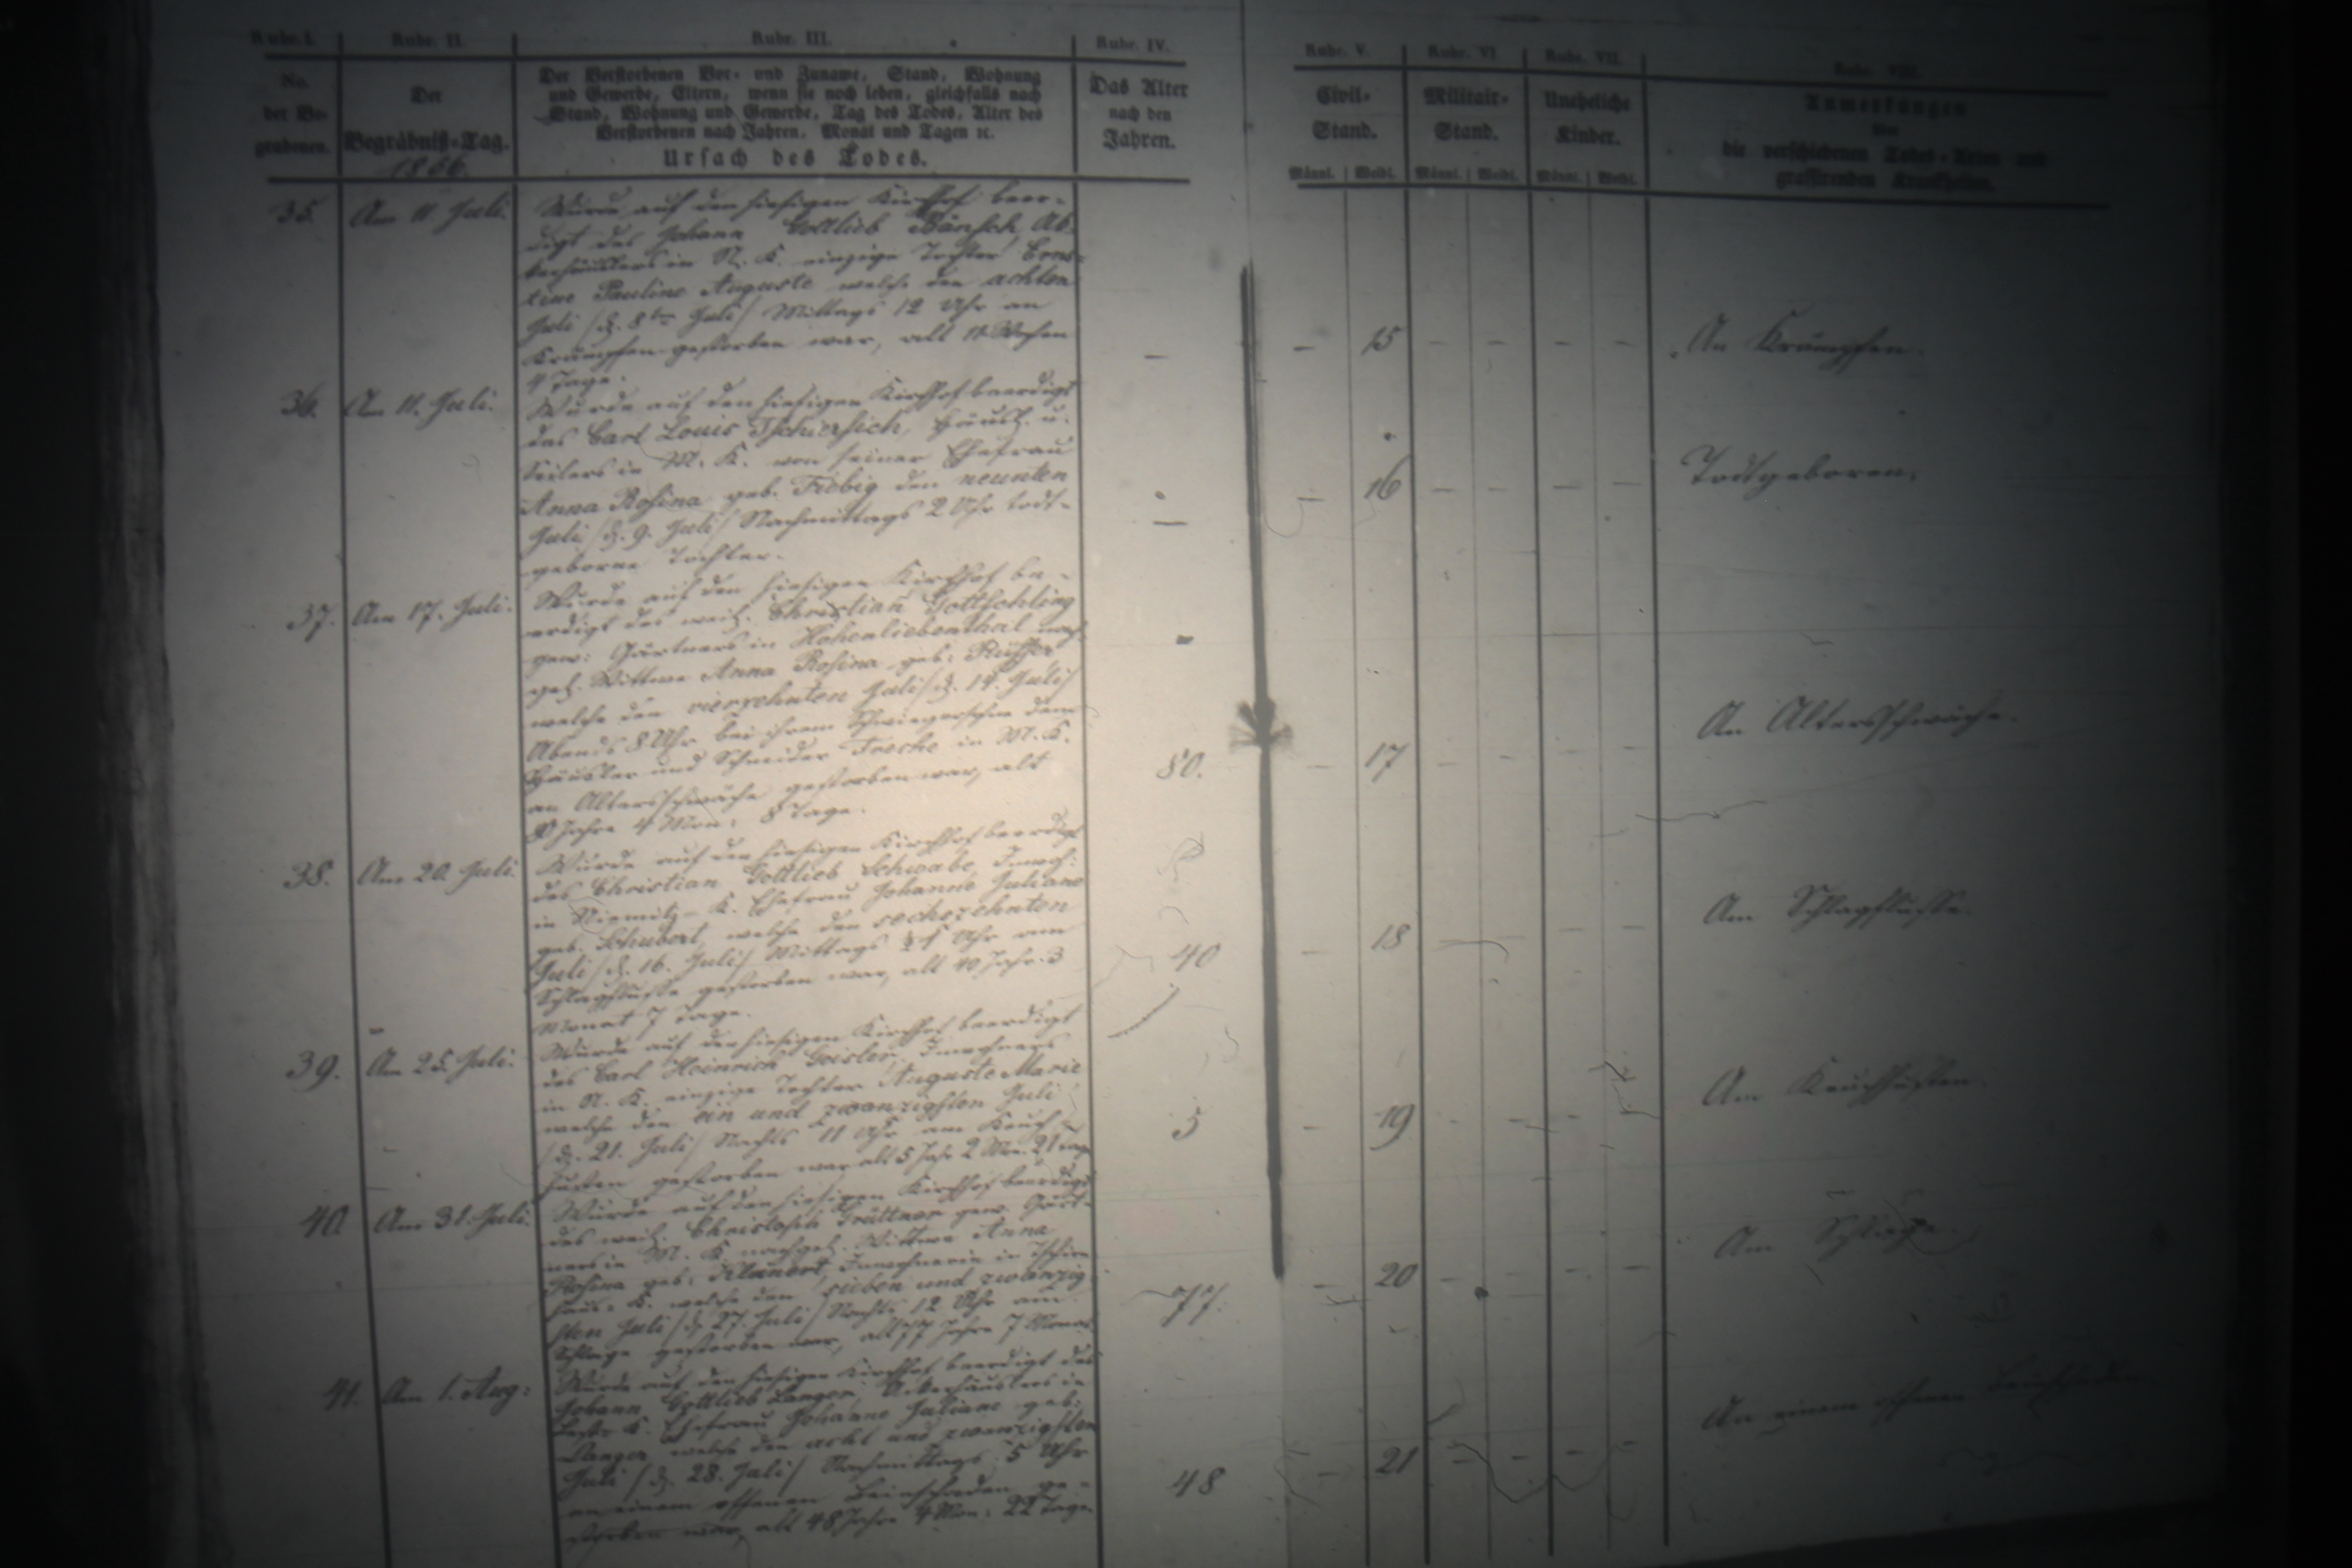 Rubr. I. Rubr. II. Rubr. III. Rubr. IV. Rubr. V. Rubr. VI. Rubr. VII. Rubr. VIII.
No. der Be- grabenen.
Der Begräbniß-Tag. 1866.
Der Verstorbenen Vor- und Zuname, Stand, Wohnung
und Gewerbe, Eltern, wenn sie noch leben, gleichfalls nach
Stand, Wohnung und Gewerbe, Tag des Todes, Alter des
Verstorbenen nach Jahren, Monat und Tagen ꝛc.
Ursach des Todes.
Das Alter
nach den
Jahren.
Civil-
Stand.
Militair-
Stand.
Uneheliche
Kinder.
Anmerkungen
über
die verschiedenen Todes-Arten und
grassirenden Krankheiten.
Männl. Weibl. Männl. Weibl. Männl. Weibl.
35. Am 11. Juli.
Wurde auf den hiesigen Kirchhof beer-
digt des Johann Gottlieb Bänsch, Ak-
kerhäuslers in N. K. einzige Tochter Erns-
tine Pauline Auguste welche den achten
Juli /d. 8ten Juli/ Mittags 12 Uhr an
Krämpfen gestorben war, alt 11 Wochen
4 Tage.
— — 15 — — — — An Krämpfen.
36. Am 11. Juli.
Wurde auf den hiesigen Kirchhof beerdigt
des Carl Louis Tschirsich, Häusl. u.
Seilers in M. K. von seiner Ehefrau
Anna Rosina geb. Fiebig den neunten
Juli /d. 9. Juli/ Nachmittags 2 Uhr todt-
geborne Tochter.
— — 16 — — — — Todtgeboren.
37. Am 17. Juli.
Wurde auf den hiesigen Kirchhof be-
erdigt des weil. Christian Gottschling
gew: Gärtners in Hohenliebenthal nach-
gel. Wittwe Anna Rosina geb:
welche den vierzehnten Juli /d. 14. Juli/
Abends 8 Uhr bei ihrem Schwiegersohne dem
Häusler und Schneider in M. K.
an Altersschwäche gestorben war, alt
80 Jahre 4 Mon: 8 Tage.
80. — 17 — — — — An Altersschwäche.
38. Am 20. Juli.
Wurde auf den hiesigen Kirchhof beerdigt
des Christian Gottlieb Schwabe, Inwoh:
in K. Ehefrau Johanne Juliane
geb. Schubert, welche den sechszehnten
Juli /d. 16. Juli/ Mittags Uhr am
Schlagflusse gestorben war, alt 40 Jahr 3
Monat 7 Tage.
40 — 18 — — — — Am Schlagflusse.
39. Am 25. Juli.
Wurde auf den hiesigen Kirchhof beerdigt
des Carl Heinrich Geisler, Inwohners
in N. K. einzige Tochter Auguste Marie
welche den ein und zwanzigsten Juli
/d. 21. Juli/ Nachts 11 Uhr am Keuch-
husten gestorben war alt 5 Jahr 2 Mon. 21 Tage
5 — 19 — — — — Am Keuchhusten.
40. Am 31. Juli.
Wurde auf den hiesigen Kirchhof beerdigt
des weil. Christoph Grüttner gew. Gärt-
ners in M. K. nachgel. Wittwe Anna
Rosina geb: Inwohnerin in
K. welche den sieben und zwanzig-
sten Juli /d. 27. Juli/ Nachts 12 Uhr am
Schlage gestorben war, alt 77 Jahre 7 Monat
77. — 20 — — — — Am Schlage.
41. Am 1. Aug:
Wurde auf den hiesigen Kirchhof beerdigt des
Johann Gottlieb Langer, Ackerhäuslers in
K. Ehefrau Johanne Juliane geb:
Langer welche den acht und zwanzigsten
Juli /d. 28. Juli/ Nachmittags 5 Uhr
an einem offenen Beinschaden ge-
storben war, alt 48 Jahre 4 Mon: 22 Tage
48 — 21 — — — — An einem offenen Beinschaden.